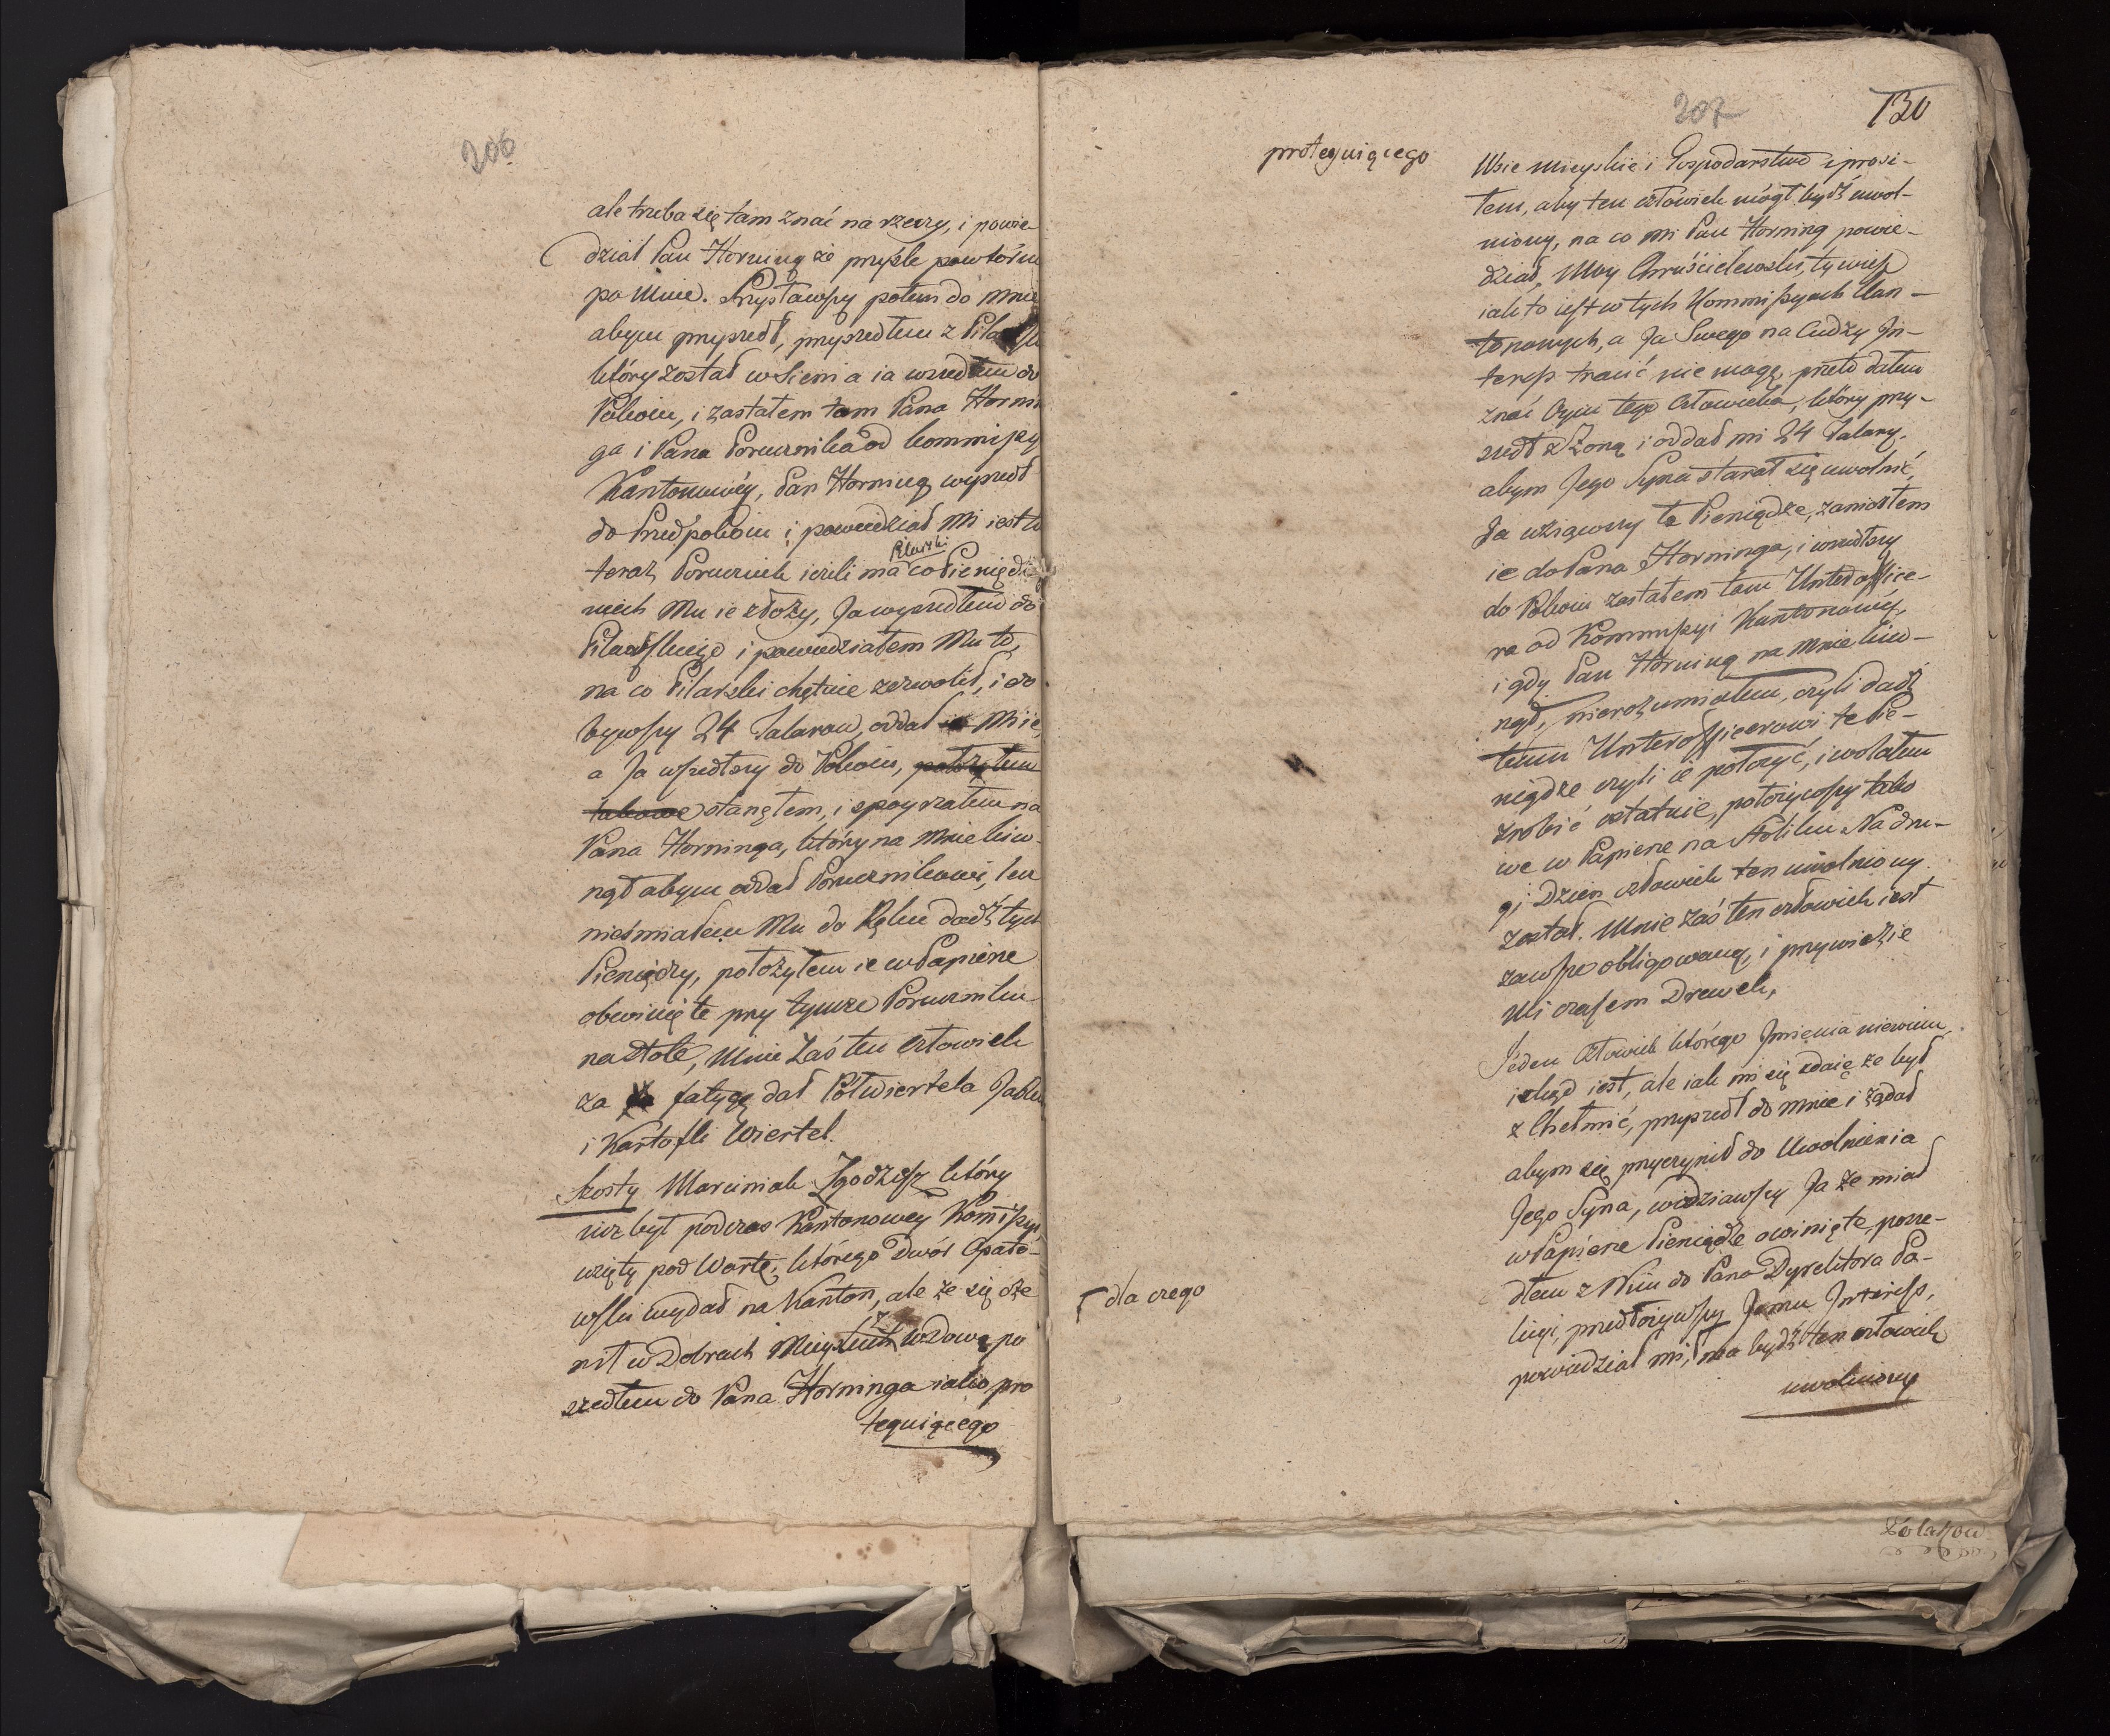 206
ale trzeba się tam znać na rzeczy, i powie-
dział Pan Horning że przyśle powtórnie
po mnie. Przysławszy potem do mnie
abym przyszedł, przyszedłem z Pilarskim
który został w Sieni a ia wszedłem do
Pokoiu, i zastałem tam Pana Hornin
ga i Pana Porucznika od kommissyi
Kantonowéy, Pan Horning wyszedł
do Przedpokoiu i powiedział mi iest tu
teraz Porucznik ieżeli ma Pilarski co Pieniędzy
niech mu ie złoży, Ja wyszedłem do
Pilarskiego i powiedziałem Mu to,
na co Pilarski chętnie zezwolił, i do
bywszy 24 Talarow, oddał mi ie,
a Ja wszedłszy do Pokoiu, położyłem
takowe stanąłem, i spoyrzałem na
Pana Horninga, który na mnie kiw-
nął abym oddał Porucznikowi, lecz
nieśmiałem Mu do Ręku dadź tych
Pieniędzy, położyłem ie w Papierze
obwinięte przy tymże Poruczniku
na Stole, Mnie zaś ten człowiek
za fatygę dał Półwiertela Jabłek
i Kartofli Wiertel.
Szosty Marciniak Zgodzisz który
iuz był podczas Kantonowey Komissyi
wzięty pod Wartę, którego Dwór Opató-
wski wydał na Kanton, ale że się oże
nił w Dobrach Mieyskich z Wdową po
szedłem do Pana Horninga iako pro
teguiącego
207
130
proteguiącego
Wsie mieyskie i Gospodarstwo i prosi-
łem, aby ten człowiek mógł bydź uwol-
niony, na co mi Pan Horning powie-
dział, Moy Chruścielewski, ty wiesz
iak to iest w tych Kommissyach Kan-
tonowych, a Ja Swego na Cudzy In-
teress tracić nie mogę, przeto dałem
znać Oycu tego Człowieka, który przy-
szedł z Żoną i oddał mi 24 Talary,
abym Jego Syna starał się uwolnić,
Ja wziąwszy te Pieniądze, zaniosłem
ie do Pana Horninga, i wszedłszy
do Pokoiu zastałem tam Unteroffice-
ra od Kommissyi Kantonowéy,
i gdy Pan Horning na mnie kiw-
nął, nierozumiałem, czyli dadź
temu Unterofficerowi te Pie-
niądze czyli ie położyć, i wolałem
zrobić ostatnie, położywszy tako
we w Papierze na Stoliku. Na dru-
gi Dzień człowiek ten uwolniony
został. Mnie zaś ten człowiek iest
zawsze obligowany, i przywiezie
Mi czasem Drewek.
Jeden Człowiek którego Jmienia niewiem,
i zkąd iest, ale iak mi się zdaie że był
z Chełmic, przyszedł do mnie i żądał
abym się przyczynił do Uwolnienia
Jego Syna, widziawszy Ja że miał
w Papierze Pieniądze owinięte, posze-
dłem z Nim do Pana Dyrektora Po-
licyi, przedłożywszy Jemu Interess,
powiedział mi, ma bydź ten człowiek
uwolniony
dla czego